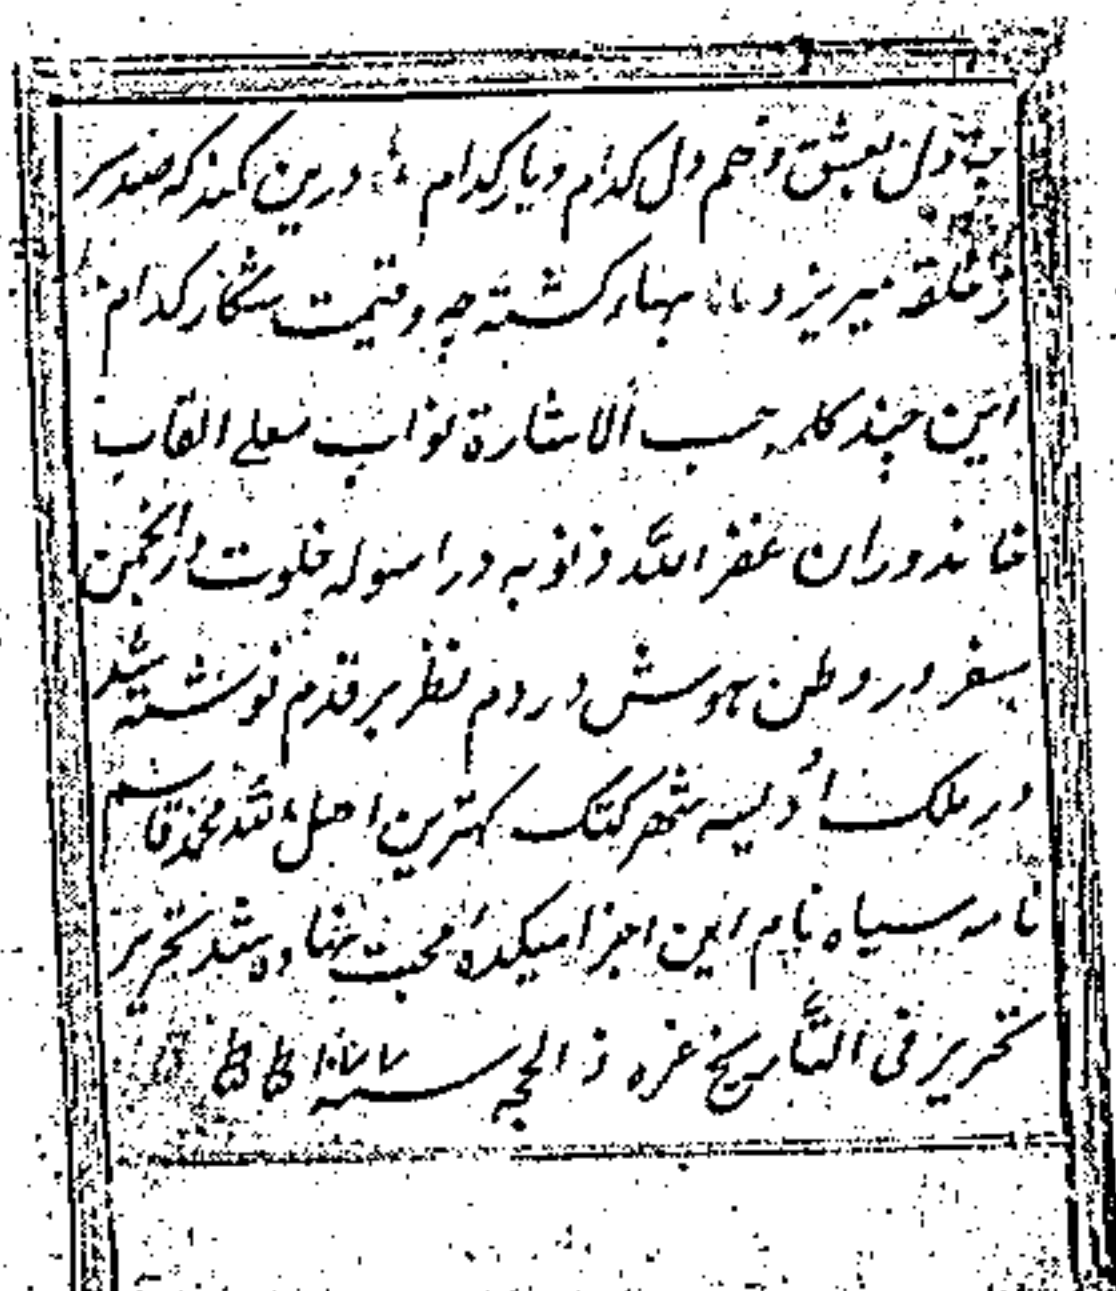 چو دل بعشق دهم دل کدام و یار کدام درین کمند که صد سر
ز حلقه میریزد بهار کشته چه و قیمت شکار کدام
این چند کلمه حسب الاشارة نواب معلی القاب
خاندوران غفر الله ذنوبه در اسوله خلوت در انجمن
سفر در وطن هوش در دم نظر بر قدم نوشته شد
در ملک اودیسه شهر کتک کهترین اهل الله محمد قاسم
نامه سیاه نام این اجزا میکدهٔ محبت نهاده شد تحریر
تحریر فی التاریخ غره ذ الحجه سنه